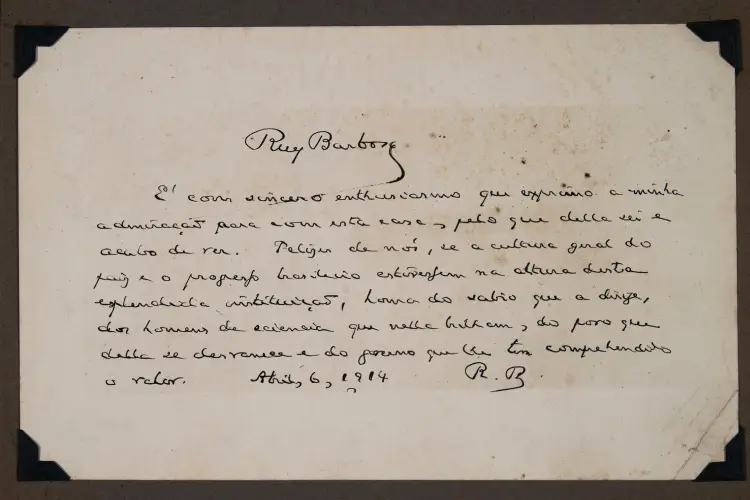 Ruy Barbosa
E' com sincero enthusiasmo que exprimo a minha
admiração para com esta casa, pelo que della sei e
acabo de ver. Felizes de nós, se a cultura geral do
paiz e o progresso brasileiro estivessem na altura desta
esplendida instituição, honra do sabio que a dirige,
dos homens de sciencia que nella brilham, do povo que
della se desvanece e do governo que lhe tem comprehendido
o valor. Abril, 6, 1914 R. B